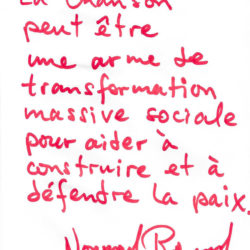 La chanson
peut être
une arme de
transformation
massive sociale
pour aider à
construire et à
défendre la paix.